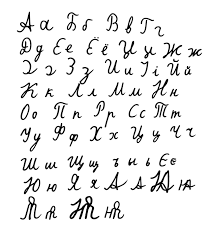 А а Б б В в Г г
Д д Е е Ё ё Ж ж
З з И и І і Й й
К к Л л М м Н н
О о П п Р р С с Т т
У у Ф ф Х х Ц ц Ч ч
Ш ш Щ щ ъ ы ь Є є
Ю ю Я я Ѧ ѧ Ѩ ѩ
Ѫ ѫ Ѭ ѭ